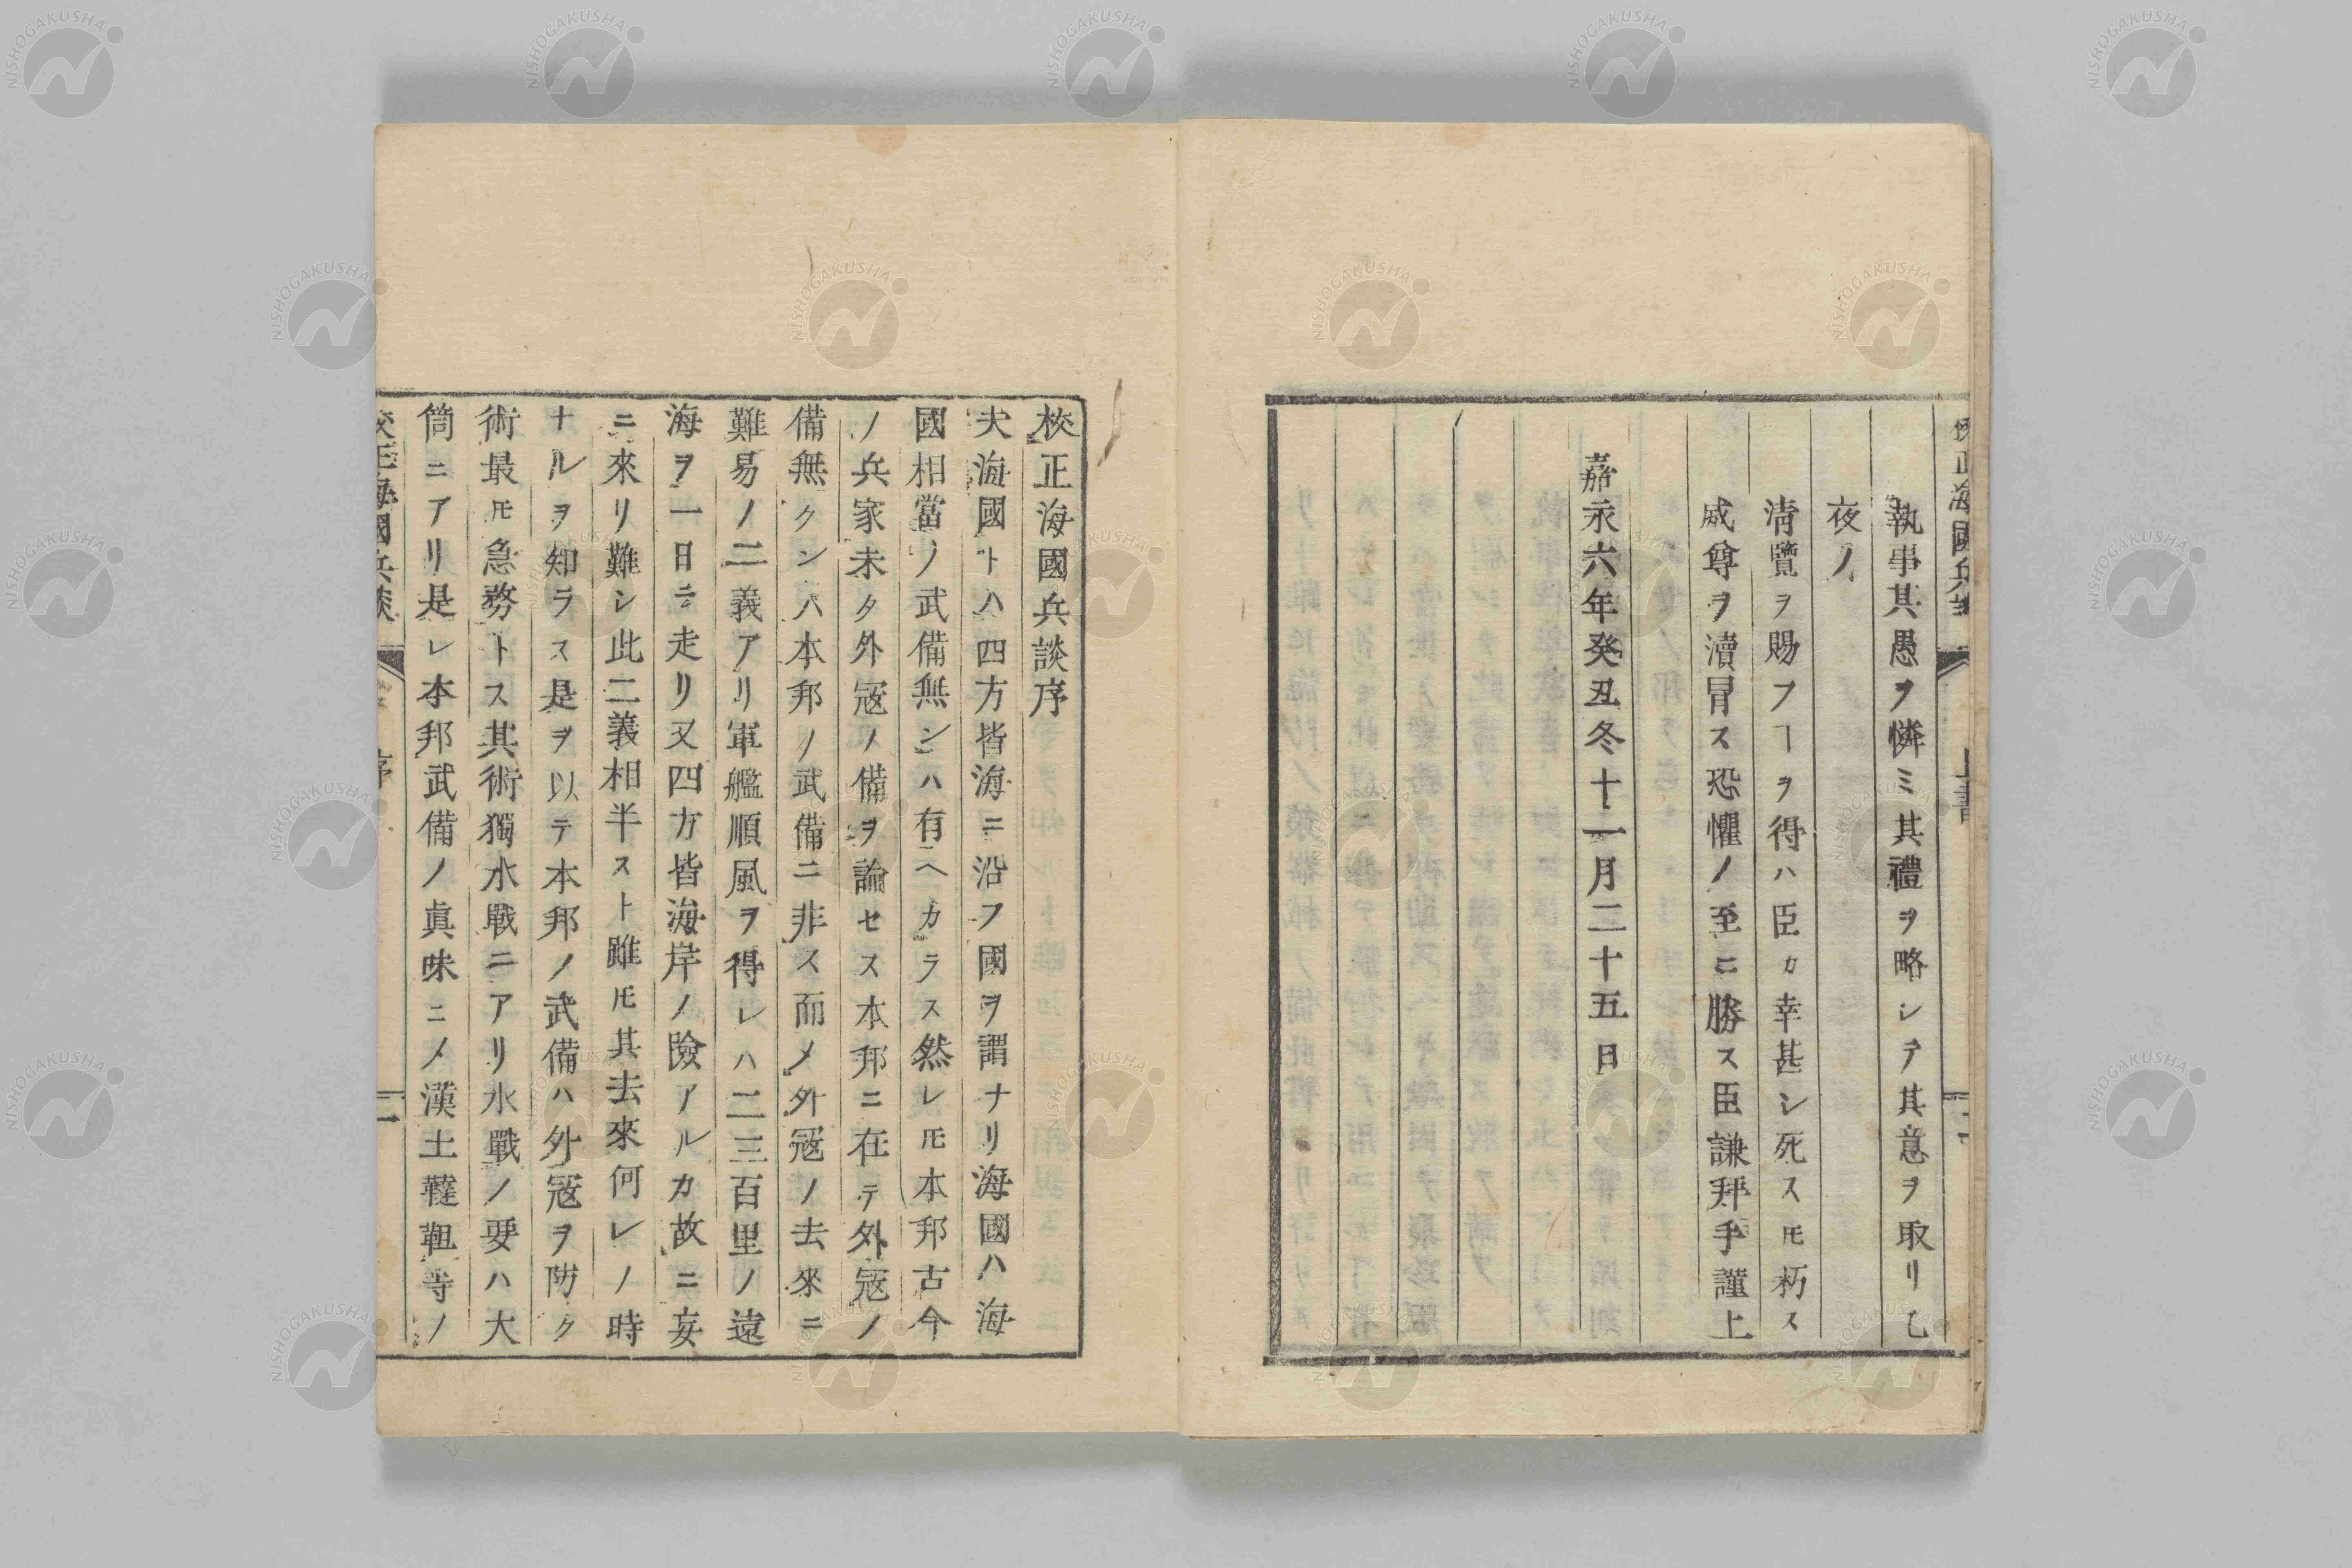 執事其愚ヲ憐ミ其禮ヲ略シテ其意ヲ取リ乙
夜ノ
清覽ヲ賜フヿヲ得ハ臣カ幸甚シ死スㇳモ朽ス
威尊ヲ瀆冒ス恐懼ノ至ニ勝ス臣謙拜手謹上
嘉永六年癸丑冬十一月二十五日
校正海國兵談序
夫海國トハ四方皆海ニ沿フ國ヲ謂ナリ海國ハ海
國相當ノ武備無シハ有ヘカラス然レ𪜈本邦古今
ノ兵家未タ外冦ノ備ヲ論セス本邦ニ在テ外冦ノ
備無クンハ本邦ノ武備ニ非ス而メ外冦ノ去來ニ
難易ノ二義アリ軍艦順風ヲ得レハ二三百里ノ遠
海ヲ一日ニ走リ又四方皆海岸ノ險アルカ故ニ妄
ニ來リ難シ此二義相半スト雖𪜈其去來何レノ時
ナルヲ知ラス是ヲ以テ本邦ノ武備ハ外冦ヲ防ク
術最𪜈急務トス其術獨水戰ニアリ水戰ノ要ハ大
筒ニアリ是レ本邦武備ノ眞味ニメ漢土韃靼等ノ
校正海國兵談
序
一
NISHOGAKUSHA